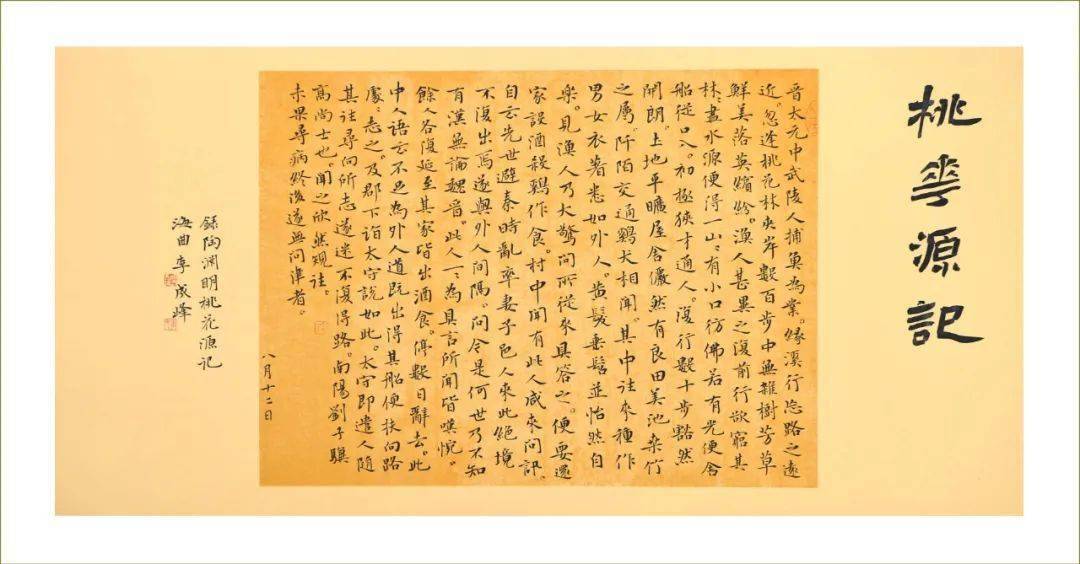 桃華源記
晉太元中武陵人捕魚為業。緣溪行忘路之遠
近。忽逢桃花林夾岸數百步中無雜樹芳草
鮮美落英繽紛。漁人甚異之復前行欲窮其
林〻盡水源便得一山〻有小口彷佛若有光便舍
船從口入。初極狹才通人。復行數十步豁然
開朗。土地平曠屋舍儼然有良田美池桑竹
之屬。阡陌交通鷄犬相聞。其中往來種作
男女衣著悉如外人。黃髮垂髫並怡然自
樂。見漁人乃大驚問所從來具答之。便要還
家設酒殺鷄作食。村中聞有此人咸來問訊。
自云先世避秦時亂率妻子邑人來此絕境
不復出焉遂與外人間隔。問今是何世乃不知
有漢無論魏晉。此人一〻為具言所聞皆嘆惋。
餘人各復延至其家皆出酒食。停數日辭去。此
中人語云不足為外人道既出得其船便扶向路
處〻志之。及郡下詣太守說如此。太守即遣人隨
其往尋向所志遂迷不復得路。南陽劉子驥
高尚士也。聞之欣然規往。
未果尋病終後遂無問津者。
八月十二日
錄陶淵明桃花源記
海曲李成